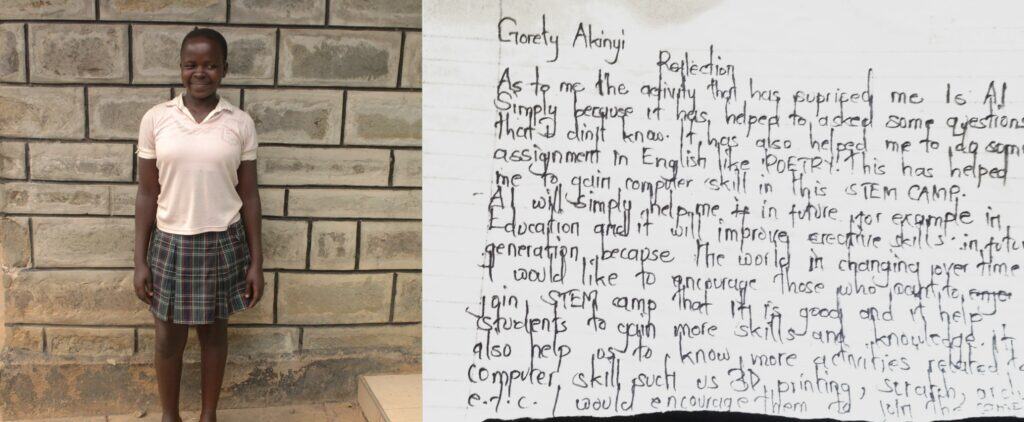 Gorety Akinyi
Reflection
As to me the activity that has supriced me Is AI
Simply because it has helped to asked some questions
that I din't know. It has also helped me to do some
assignment in English like "POETRY". This has helped
me to gain computer skill in this STEM CAMP.
- AI will simply help me in future for example in
Education and it will improve creative skills in
generation because the world in changing over time
- I would like to encourage those who want to
join STEM camp that it is good and it help
students to gain more skills and knowledge. It
also help us to know more activities related
computer skill such us 3D printing, scratch,
e.t.c. I would encourage them to join the same